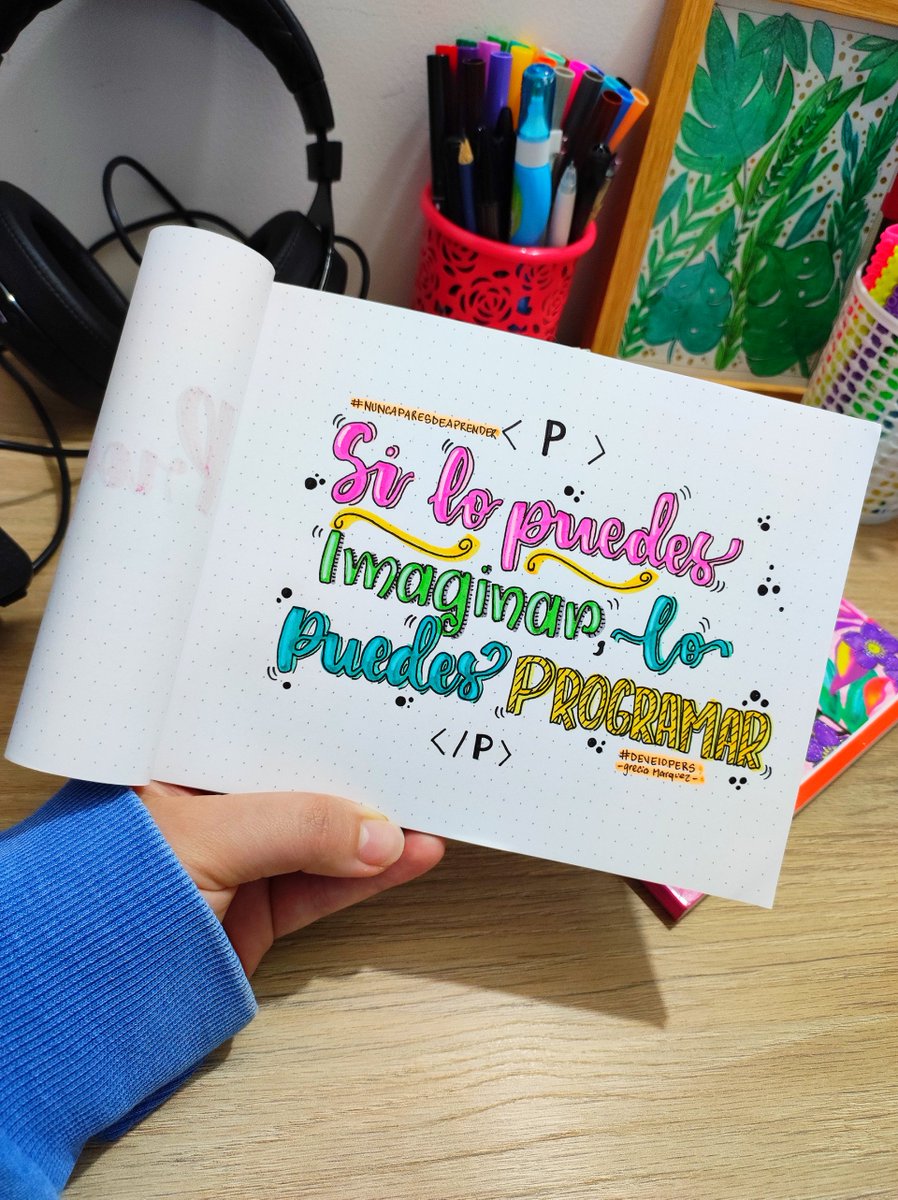 #NUNCAPARESDEAPRENDER
< P >
Si lo puedes
Imaginar, lo
Puedes PROGRAMAR
</P>
#DEVELOPERS
-grecia Marquez-